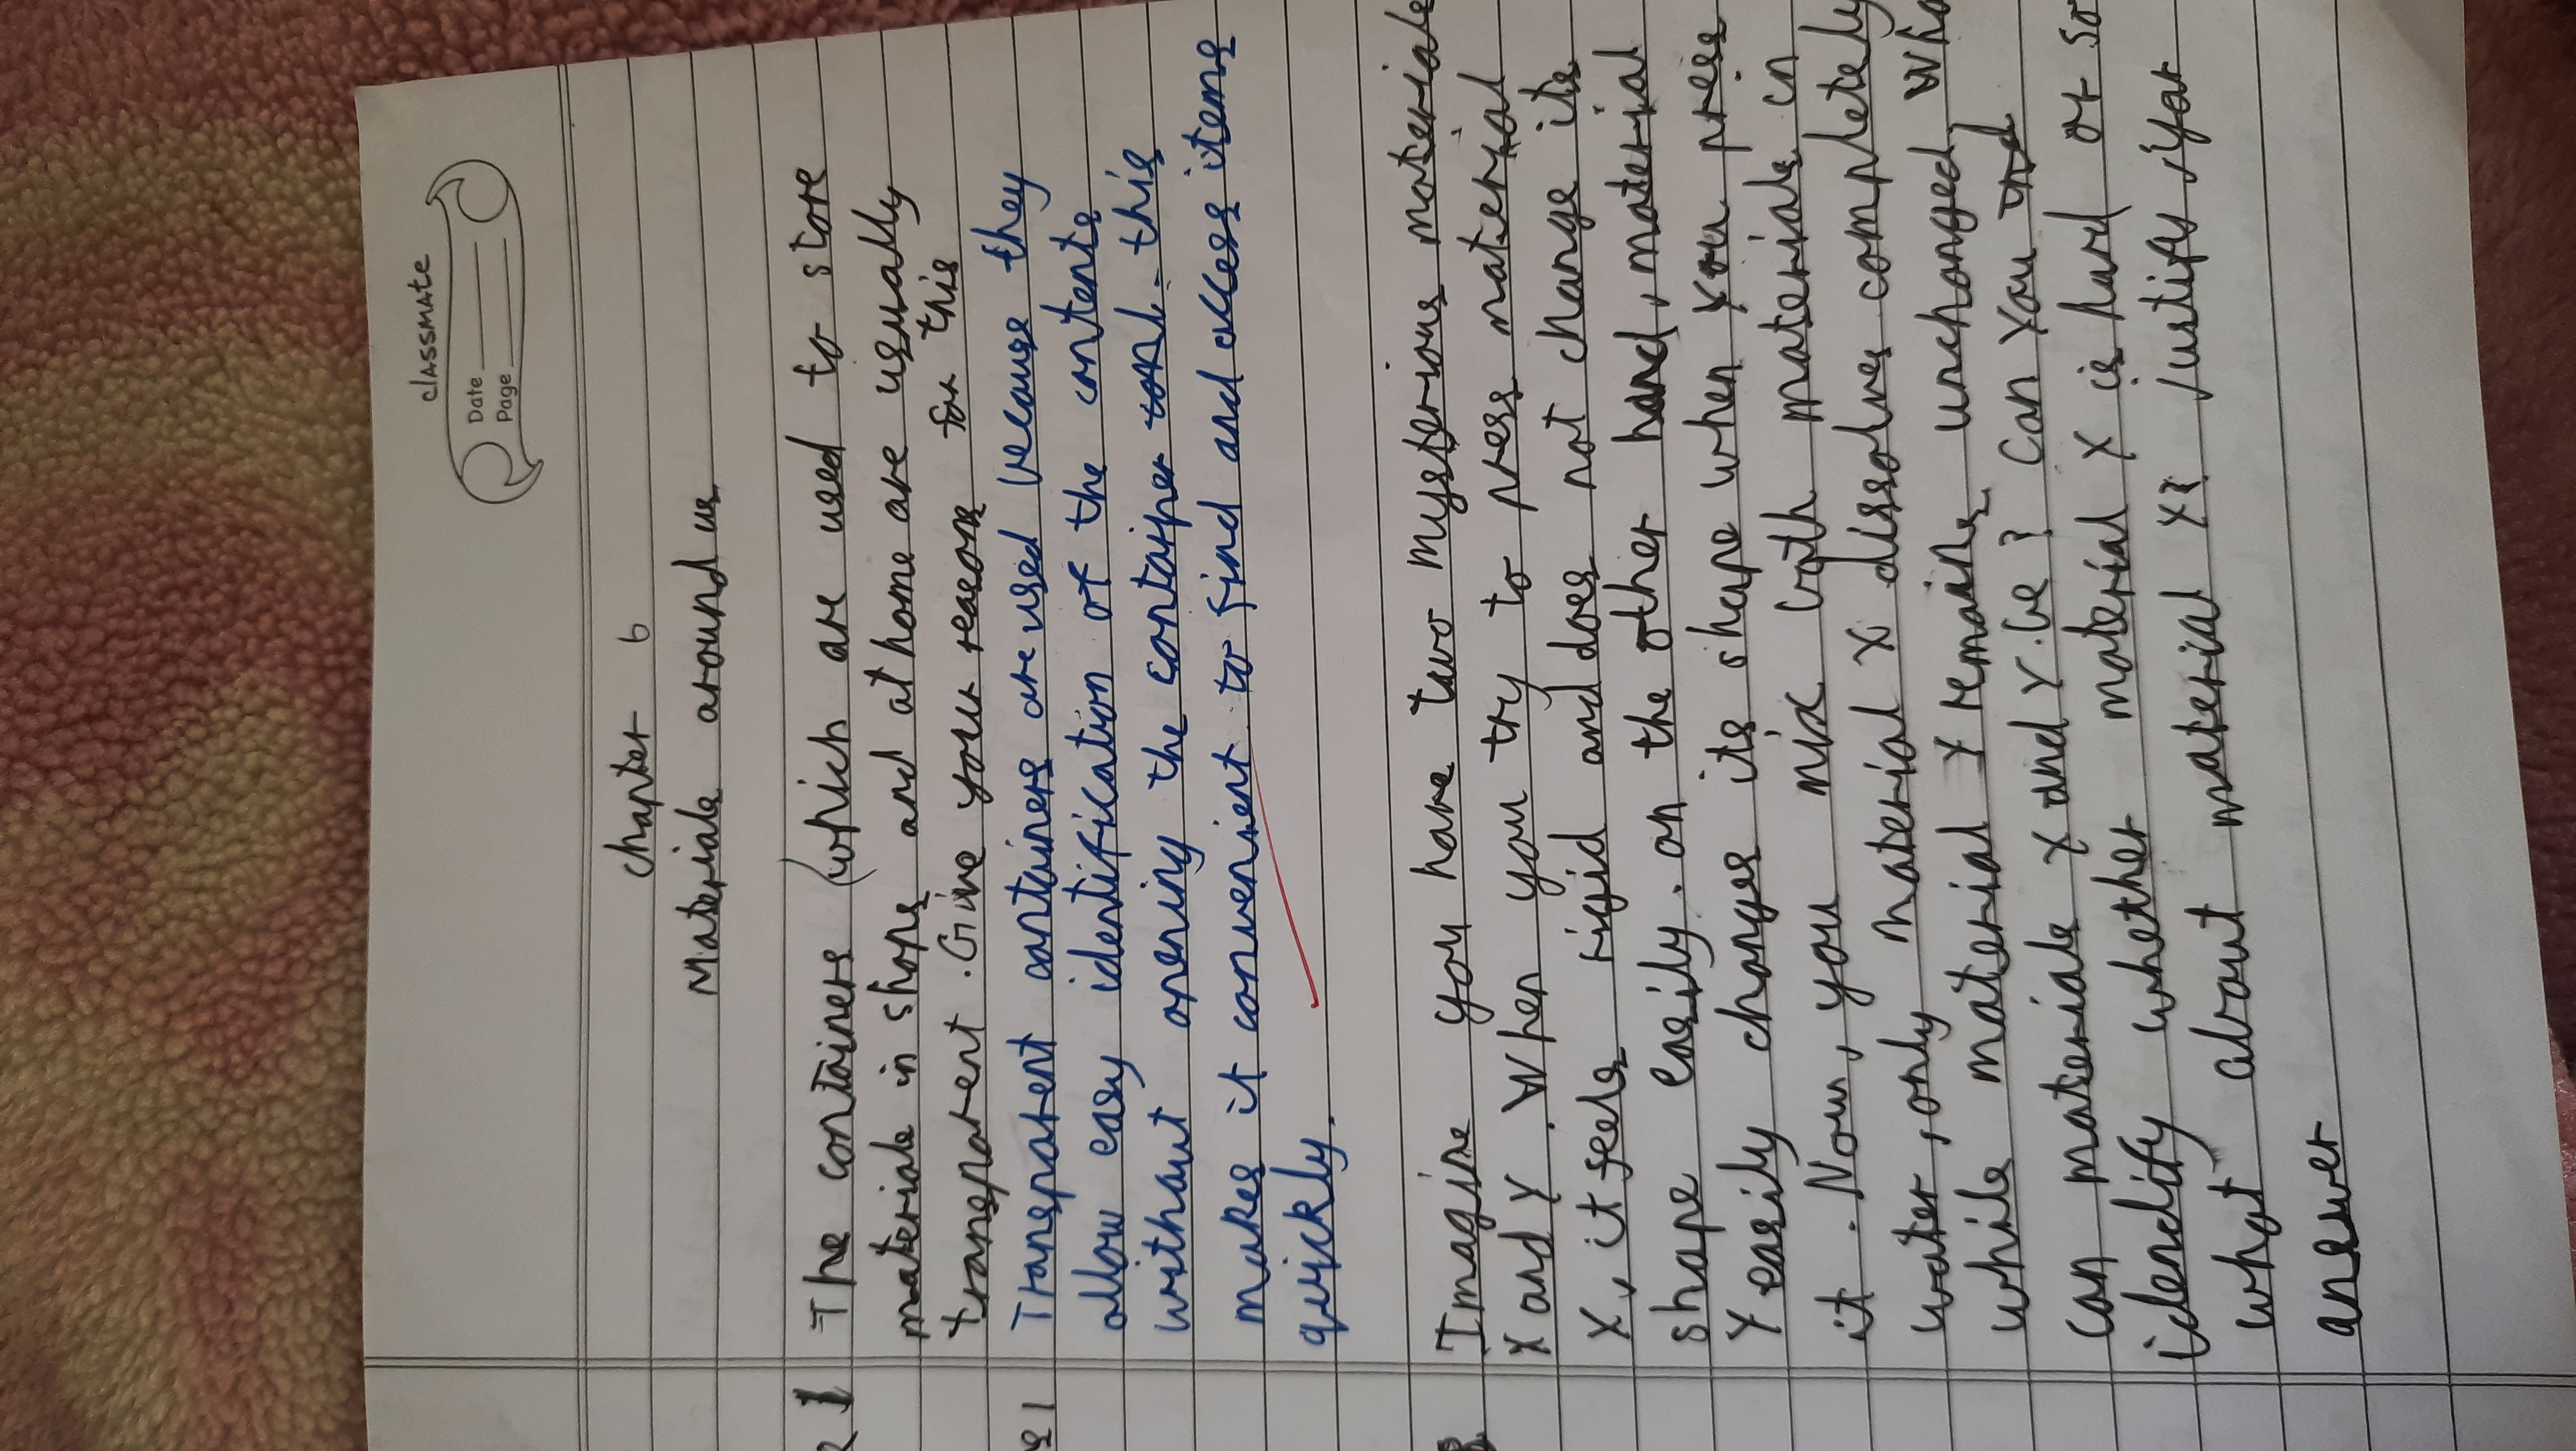 classmate
Date
Page
Chapter 6
Materials around us
1 The containers (which are used to store
materials in shops and at home are usually
transparent. Give your reasons for this
1 Transparent containers are used because they
allow easy identification of the contents
without opening the container. this
makes it convenient to find and access items
quickly.
Imagine you have two mysterious materials
X and Y. When you try to press material
X, it feels rigid and does not change its
shape easily. on the other hand, material
Y easily changes its shape when you press
it. Now, you mix both materials in
water, only material X dissolves completely
while material Y remains unchanged
can materials X and Y be? can you
identify whether material X is hard or
what about material Y? Justify your
answer